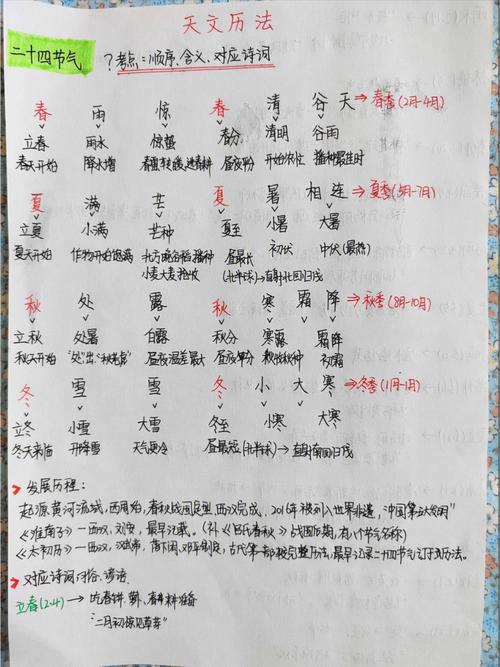 天文历法
二十四节气 ?考点:顺序、含义、对应诗词
春 雨 惊 春 清 谷 天 → 春季(2月-4月)
立春 雨水 惊蛰 春分 清明 谷雨
春天开始 降水增 春雷,转暖,进春耕 昼夜平分 开始农忙 播种最佳时
夏 满 芒 夏 暑 相 连 → 夏季(5月-7月)
立夏 小满 芒种 夏至 小暑 大暑
夏天开始 作物开始饱满 北方晚谷稻播种 昼最长 初伏 中伏(最热)
小麦大麦抢收 (北半球)→直射北回归线
秋 处 露 秋 寒 霜 降 → 秋季(8月-10月)
立秋 处暑 白露 秋分 寒露 霜降
秋天开始 "处"出,"秋老虎" 昼夜温差最大 昼夜平分 秋收秋种 初霜
冬 雪 雪 冬 小 大 寒 → 冬季(11月-1月)
立冬 小雪 大雪 冬至 小寒 大寒
冬天来临 开降雪 天气更冷 昼最短(北半球)→直射南回归线
→ 发展历程:
起源黄河流域,西周始,春秋战国定型,西汉完成,2016年被列入世界非遗,"中国第五大发明"
《淮南子》—西汉,刘安,最早记载。(补《吕氏春秋》战国后期,有八个节气名称)
《太初历》—西汉,汉武帝,落下闳、邓平制定,古代第一部较完整历法,最早记录二十四节气订于历法。
→ 对应诗词、习俗、谚语.
立春(2.4) → 吃春饼,春耕准备
"二月初惊见草芽"